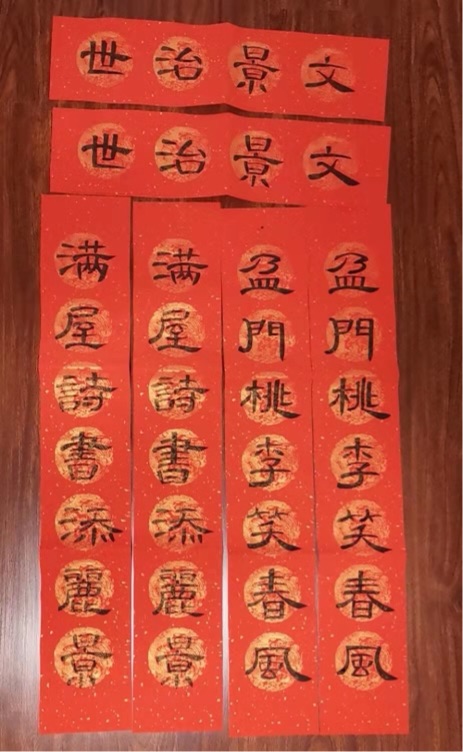 文景治世
文景治世
盈門桃李笑春風
盈門桃李笑春風
满屋詩書添麗景
满屋詩書添麗景